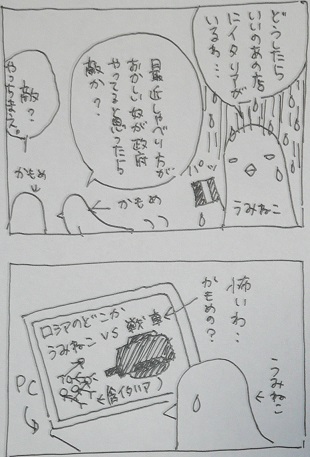 どうしたら
いいのあの店
にイタリアが
いるわ…
うみねこ
パッ
最近しゃべり方が
おかしい奴が政府
やってると思ったら
敵か？
かもめ
敵？
やっちまえ。
かもめ
怖いわ…
かもめの？
うみねこ
ロシアのどこか
うみねこVS戦車
(含イタリア)
PC